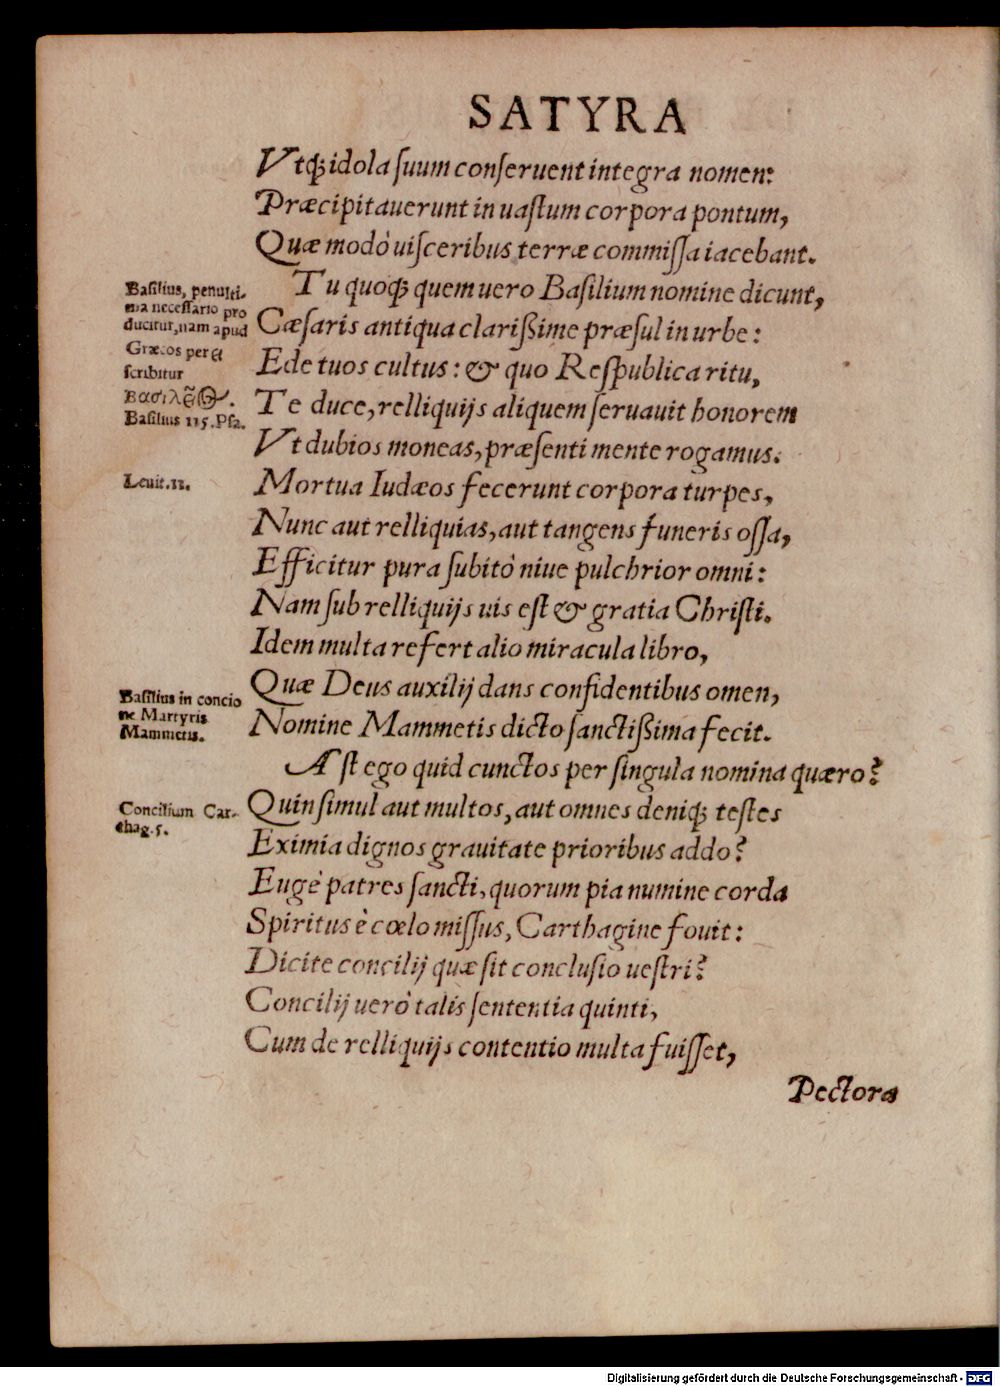 SATYRA
Vtq́; idola ſuum conſeruent integra nomen:
Præcipitauerunt in uaſtum corpora pontum,
Quæ modò uiſceribus terræ commiſſa iacebant.
Tu quoq; quem uero Baſilium nomine dicunt,
Baſilius, penulti-
ma neceſſario pro
ducitur, nam apud
Græcos per ει
ſcribitur
Βασιλει̃ος.
Baſilius 115. Pſa.
Cæſaris antiqua clarißime præſul in urbe:
Ede tuos cultus: & quo Reſpublica ritu,
Te duce, relliquijs aliquem ſeruauit honorem
Vt dubios moneas, præſenti mente rogamus.
Leuit. 11.
Mortua Iudæos fecerunt corpora turpes,
Nunc aut relliquias, aut tangens funeris oſſa,
Efficitur pura ſubitò niue pulchrior omni:
Nam ſub relliquijs uis eſt & gratia Chriſti.
Idem multa refert alio miracula libro,
Quæ Deus auxilij dans confidentibus omen,
Baſilius in concio
ne Martyris
Mammetis.
Nomine Mammetis dicto ſanctißima fecit.
Aſt ego quid cunctos per ſingula nomina quæro?
Concilium Car-
thag. 5.
Quin ſimul aut multos, aut omnes deniq; teſtes
Eximia dignos grauitate prioribus addo?
Eugè patres ſancti, quorum pia numine corda
Spiritus è cœlo miſſus, Carthagine fouit:
Dicite concilij quæ ſit concluſio ueſtri?
Concilij uerò talis ſententia quinti,
Cum de relliquijs contentio multa fuiſſet,
Pectora
Digitalisierung gefördert durch die Deutsche Forschungsgemeinschaft - DFG